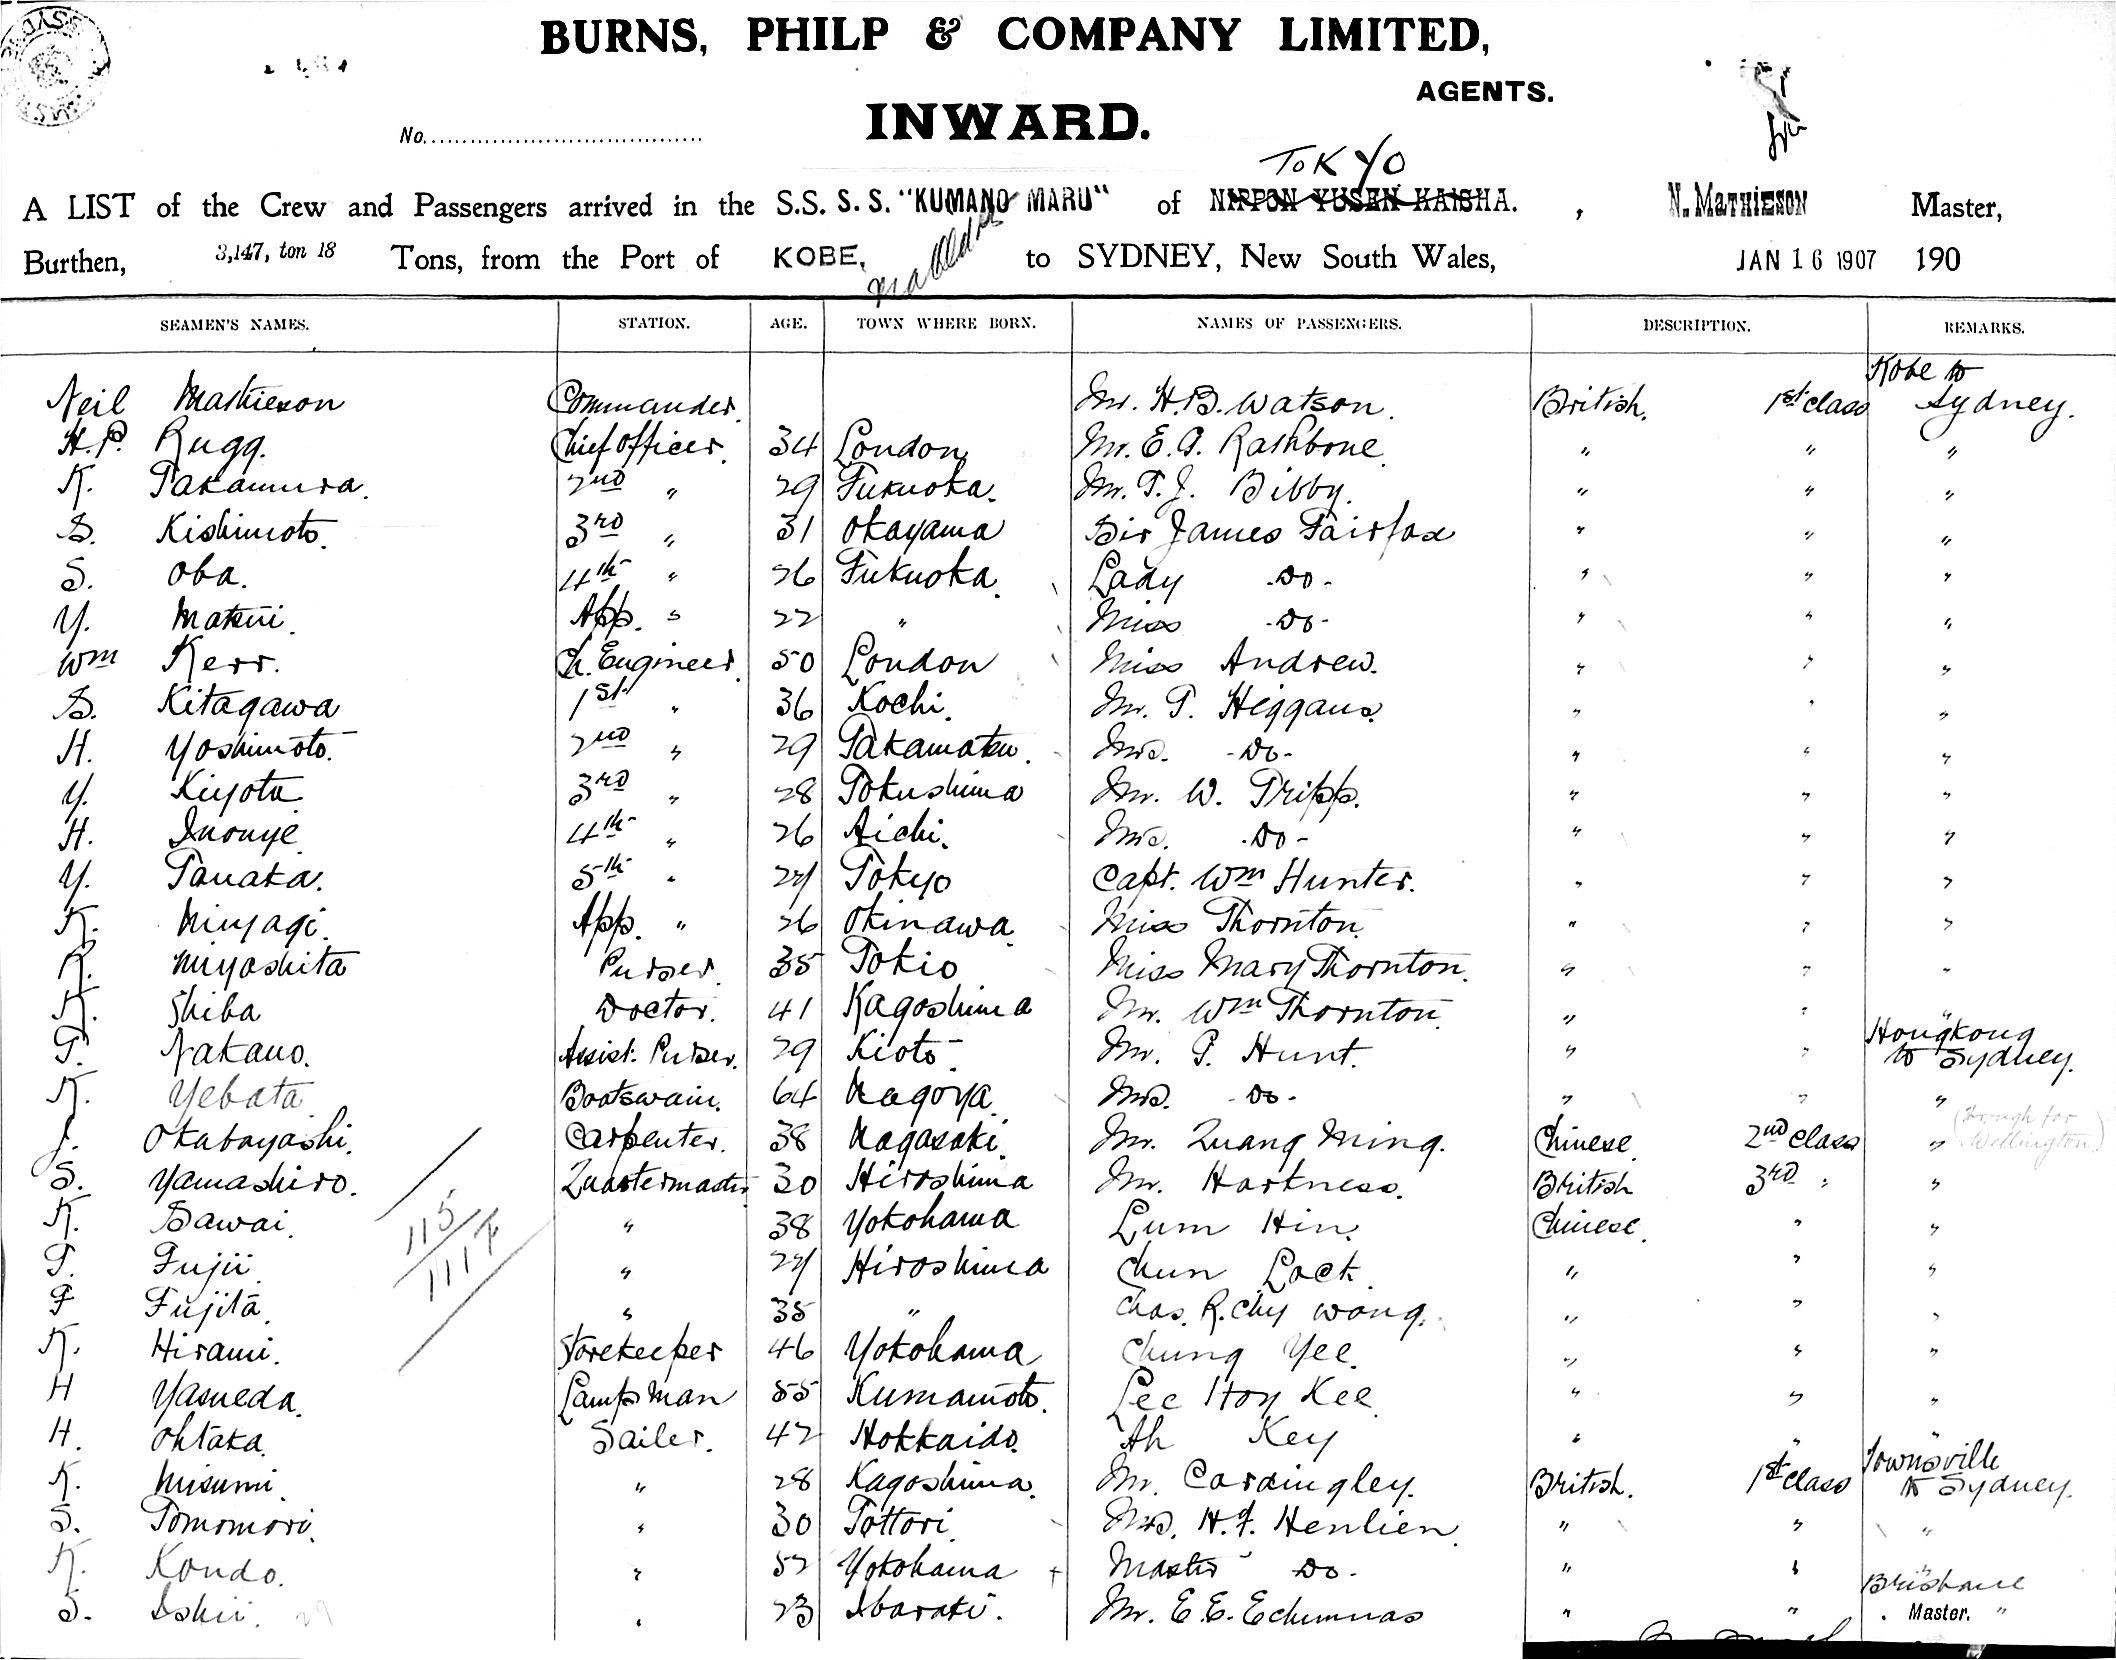 BURNS, PHILP & COMPANY LIMITED,
AGENTS.
INWARD.
No.
TOKYO
A LIST of the Crew and Passengers arrived in the S.S. S. S. "KUMANO MARU" of NIPPON YUSEN KAISHA. , N. MATHIESON Master,
Burthen, 3,147, ton 18 Tons, from the Port of KOBE, to SYDNEY, New South Wales, JAN 16 1907 190
SEAMEN'S NAMES. STATION. AGE. TOWN WHERE BORN. NAMES OF PASSENGERS. DESCRIPTION. REMARKS.
Neil Mathieson Commander. Mr. H.B. Watson. British. 1st class Kobe to Sydney.
H.P. Rugg. Chief Officer. 34 London Mr. E.G. Rathbone. " " "
K. Takamura. 2nd " 29 Fukuoka. Mr. T.J. Bibby. " " "
S. Kishimoto. 3rd " 31 Okayama Sir James Fairfax " " "
S. Oba. 4th " 26 Fukuoka. Lady -Do- " " "
Y. Matsui. App. " 22 " Miss -Do- " " "
Wm Kerr. Ch. Engineer. 50 London Miss Andrew. " " "
S. Kitagawa 1st " 36 Kochi. Mr. T. Higgans. " " "
H. Yoshimoto. 2nd " 29 Takamatsu. Mrs. -Do- " " "
Y. Kiyota 3rd " 28 Tokushima Mr. W. Tripp. " " "
H. Inouye 4th " 26 Aichi. Mrs. -Do- " " "
Y. Tanaka. 5th " 27 Tokyo Capt. Wm Hunter. " " "
K. Miyagi. App. " 26 Okinawa Miss Thornton. " " "
R. Miyashita Purser. 35 Tokio Miss Mary Thornton. " " "
K. Shiba Doctor. 41 Kagoshima Mr. Wm Thornton. " " "
T. Nakano. Assist. Purser. 29 Kioto Mr. P. Hunt. " " Hongkong to Sydney.
K. Yebata Boatswain. 64 Nagoya. Mrs. -Do- " " "
J. Okabayashi. Carpenter. 38 Nagasaki. Mr. Quang Ming. Chinese. 2nd class " (through for Wellington)
S. Yamashiro. Quartermaster 30 Hiroshima Mr. Harkness. British 3rd " "
K. Sawai. " 38 Yokohama Lum Hin. Chinese. " "
T. Fujii. " 27 Hiroshima Chun Lock. " " "
F. Fujita. " 35 " Chas. R. Chy Wong. " " "
K. Hirami. Storekeeper 46 Yokohama Chung Yee. " " "
H Yasueda. Lamps man 55 Kumamoto. Lee Hoy Kee " " "
H. Ohtaka. Sailer. 42 Hokkaido. Ah Key " " "
K. Misumi. " 28 Kagoshima. Mr. Cardingley. British. 1st class Townsville to Sydney.
S. Tomomori. " 30 Tottori. Mrs. H.F. Henlien. " " "
K. Kondo. " 52 Yokohama Master Do- " " "
S. Ishii. " 23 Ibaraki. Mr. E.E. " " Brisbane "
Master.
115
117